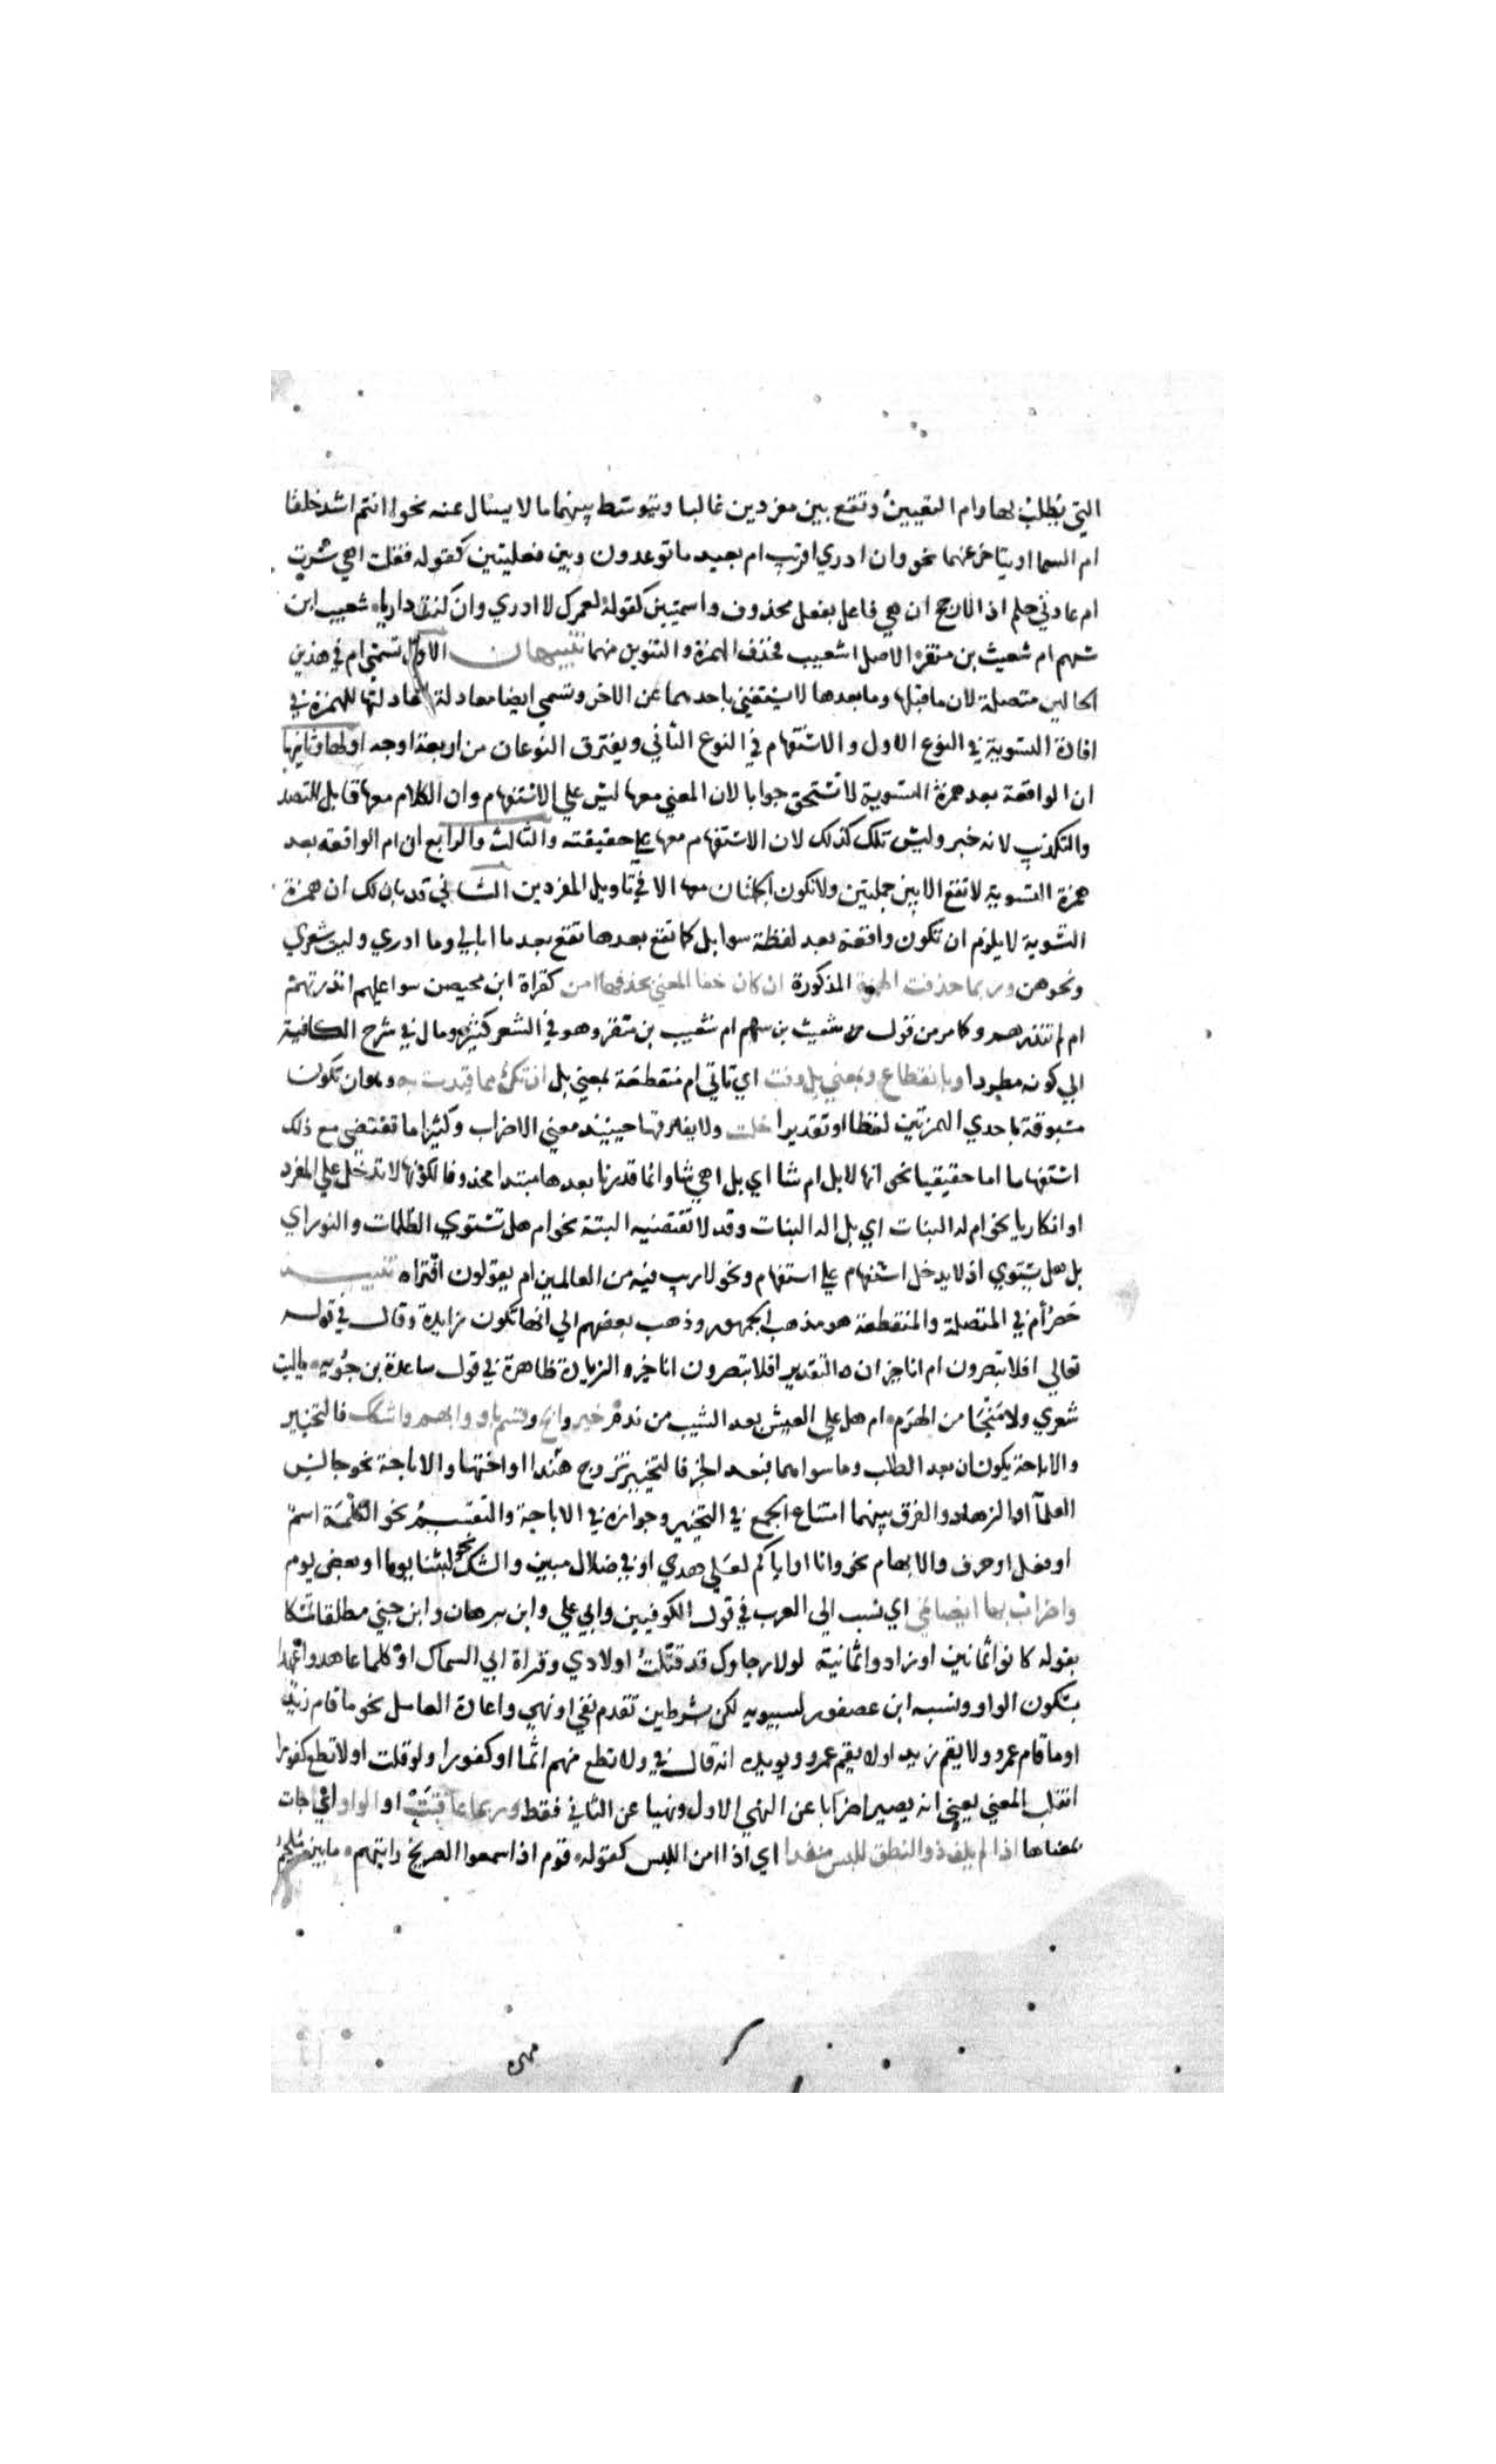 التي يطلب بها وام التعيين وتقع بين مفردين غالبا ويتوسط بينهما ما لا يسال عنه نحو اانتم اشد خلقا
ام السما او يتاخر عنهما نحو وان ادري اقريب ام بعيد ما توعدون وبين فعليتين كقوله فقلت اهي سرت
ام عادني حلم اذ الارجح ان هي فاعل بفعل محذوف واسميتين كقوله لعمرك لا ادري وان كنت داريا شعيب ابن
سهم ام شعيث بن منقر الاصل اشعيب فحذف الهمزة والتنوين منهما تنبيهان الاول تسمى ام في هذين
الحالين متصلة لان ما قبلها وما بعدها لا يستغني باحدهما عن الاخر وتسمي ايضا معادلة لمعادلتها للهمزة في
افادة التسوية في النوع الاول والاستفهام في النوع الثاني ويفترق النوعان من اربعة اوجه اولها وثانيها
ان الواقعة بعد همزة التسوية لا تستحق جوابا لان المعني معها ليس علي الاستفهام وان الكلام معها قابل للتصد
والتكذيب لانه خبر وليس تلك كذلك لان الاستفهام معها علي حقيقته والثالث والرابع ان ام الواقعة بعد
همزة التسوية لا تقع الا بين جملتين ولا تكون الجملتان معها الا في تاويل المفردين الثاني قد بان لك ان همزة
التسوية لا يلزم ان تكون واقعة بعد لفظة سوا بل كما تقع بعدها تقع بعد ما ابالي وما ادري وليت شعري
ونحوهن وربما حذفت الهمزة المذكورة ان كان خفا المعني بحذفها امن كقراة ابن محيصن سوا عليهم انذرتهم
ام لم تنذرهم وكما مر من قوله شعيث بن سهم ام شعيب بن منقر وهو في الشعر كثير ومال في شرح الكافية
الي كونه مطردا وبانقطاع وبمعني بل وفت اي تاتي ام منقطعة بمعني بل ان تك مما قيدت به وهو ان تكون
مسبوقة باحدي الهمزتين لفظا او تقديرا خلت ولا يفارقها حينيذ معني الاضراب وكثيرا ما تقتضي مع ذلك
استفهاما اما حقيقيا نحو انها لابل ام شا اي بل اهي شا وانما قدرنا بعدها مبتدا محذوفا لكونها لا تدخل علي المفرد
او انكاريا نحو ام له البنات اي بل اله البنات وقد لا تقتضيه البتة نحو ام هل تستوي الظلمات والنور اي
بل هل يستوي اذ لا يدخل استفهام علي استفهام ونحو لا ريب فيه من العالمين ام يقولون افتراه تنبيه
حصر أم في المتصلة والمنقطعة هو مذهب الجمهور وذهب بعضهم الي انها تكون زايدة وقال في قوله
تعالي افلا تبصرون ام انا خير ان التقدير افلا تبصرون انا خير والزيادة ظاهرة في قول ساعدة بن جؤيه يا ليت
شعري ولا منجا من الهرم ام هل علي العيش بعد الشيب من ندم خير وابح وقسم باو وابهم واشكك فالتخيير
والاباحة يكونان بعد الطلب وما سواهما فبعد الخبر فالتخيير تزوج هندا او اختها والاباحة نحو جالس
العلما او الزهاد والفرق بينهما امتناع الجمع في التخيير وجوازه في الاباحة والتقسيم نحو الكلمة اسم
او فعل او حرف والابهام نحو وانا او اياكم لعلي هدي او في ضلال مبين والشك نحو لبثنا يوما او بعض يوم
واضراب بها ايضا نمي اي نسب الي العرب في قول الكوفيين وابي علي وابن برهان وابن جني مطلقا تمسكا
بقوله كانوا ثمانين او زادوا ثمانية لولا رجاوك قد قتلت اولادي وقراة ابي السمال او كلما عاهدوا عهدا
بسكون الواو ونسبه ابن عصفور لسيبويه لكن بشرطين تقدم نفي او نهي واعادة العامل نحو ما قام زيد
او ما قام عمرو ولا يقم زيد او لا يقم عمرو ويويده انه قال في ولا تطع منهم اثما او كفورا ولو قلت او لا تطع كفورا
انقلب المعني يعني انه يصير اضرابا عن النهي الاول ونهيا عن الثاني فقط وربما عاقبت او الواو اي جات
بمعناها اذا لم يلف ذو النطق للبس منفذا اي اذا امن اللبس كقوله قوم اذا سمعوا الصريخ رايتهم ما بين ملجم